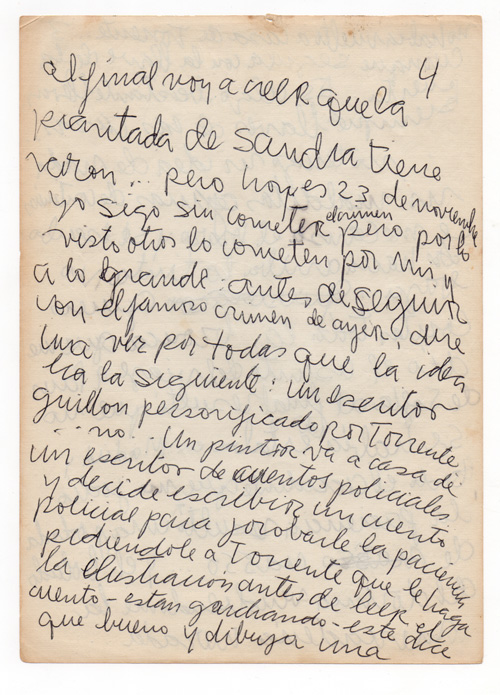 4
al final voy a creer que la
piantada de Sandra tiene
razon... pero hoy es 23 de noviembre
yo sigo sin cometer el crimen pero por lo
visto otros lo cometen por mi y
a lo grande. antes de seguir
con el famoso crimen de ayer, dire
una vez por todas que la idea
era la siguiente: un escritor
guillon personificado por Torrente
... no... un pintor va a casa de
un escritor de cuentos policiales
y decide escribir un cuento
policial para jorobarle la paciencia
pidiendole a Torrente que le haga
la ilustracion antes de leer el
cuento - estan garchando - este dice
que bueno y dibuja una